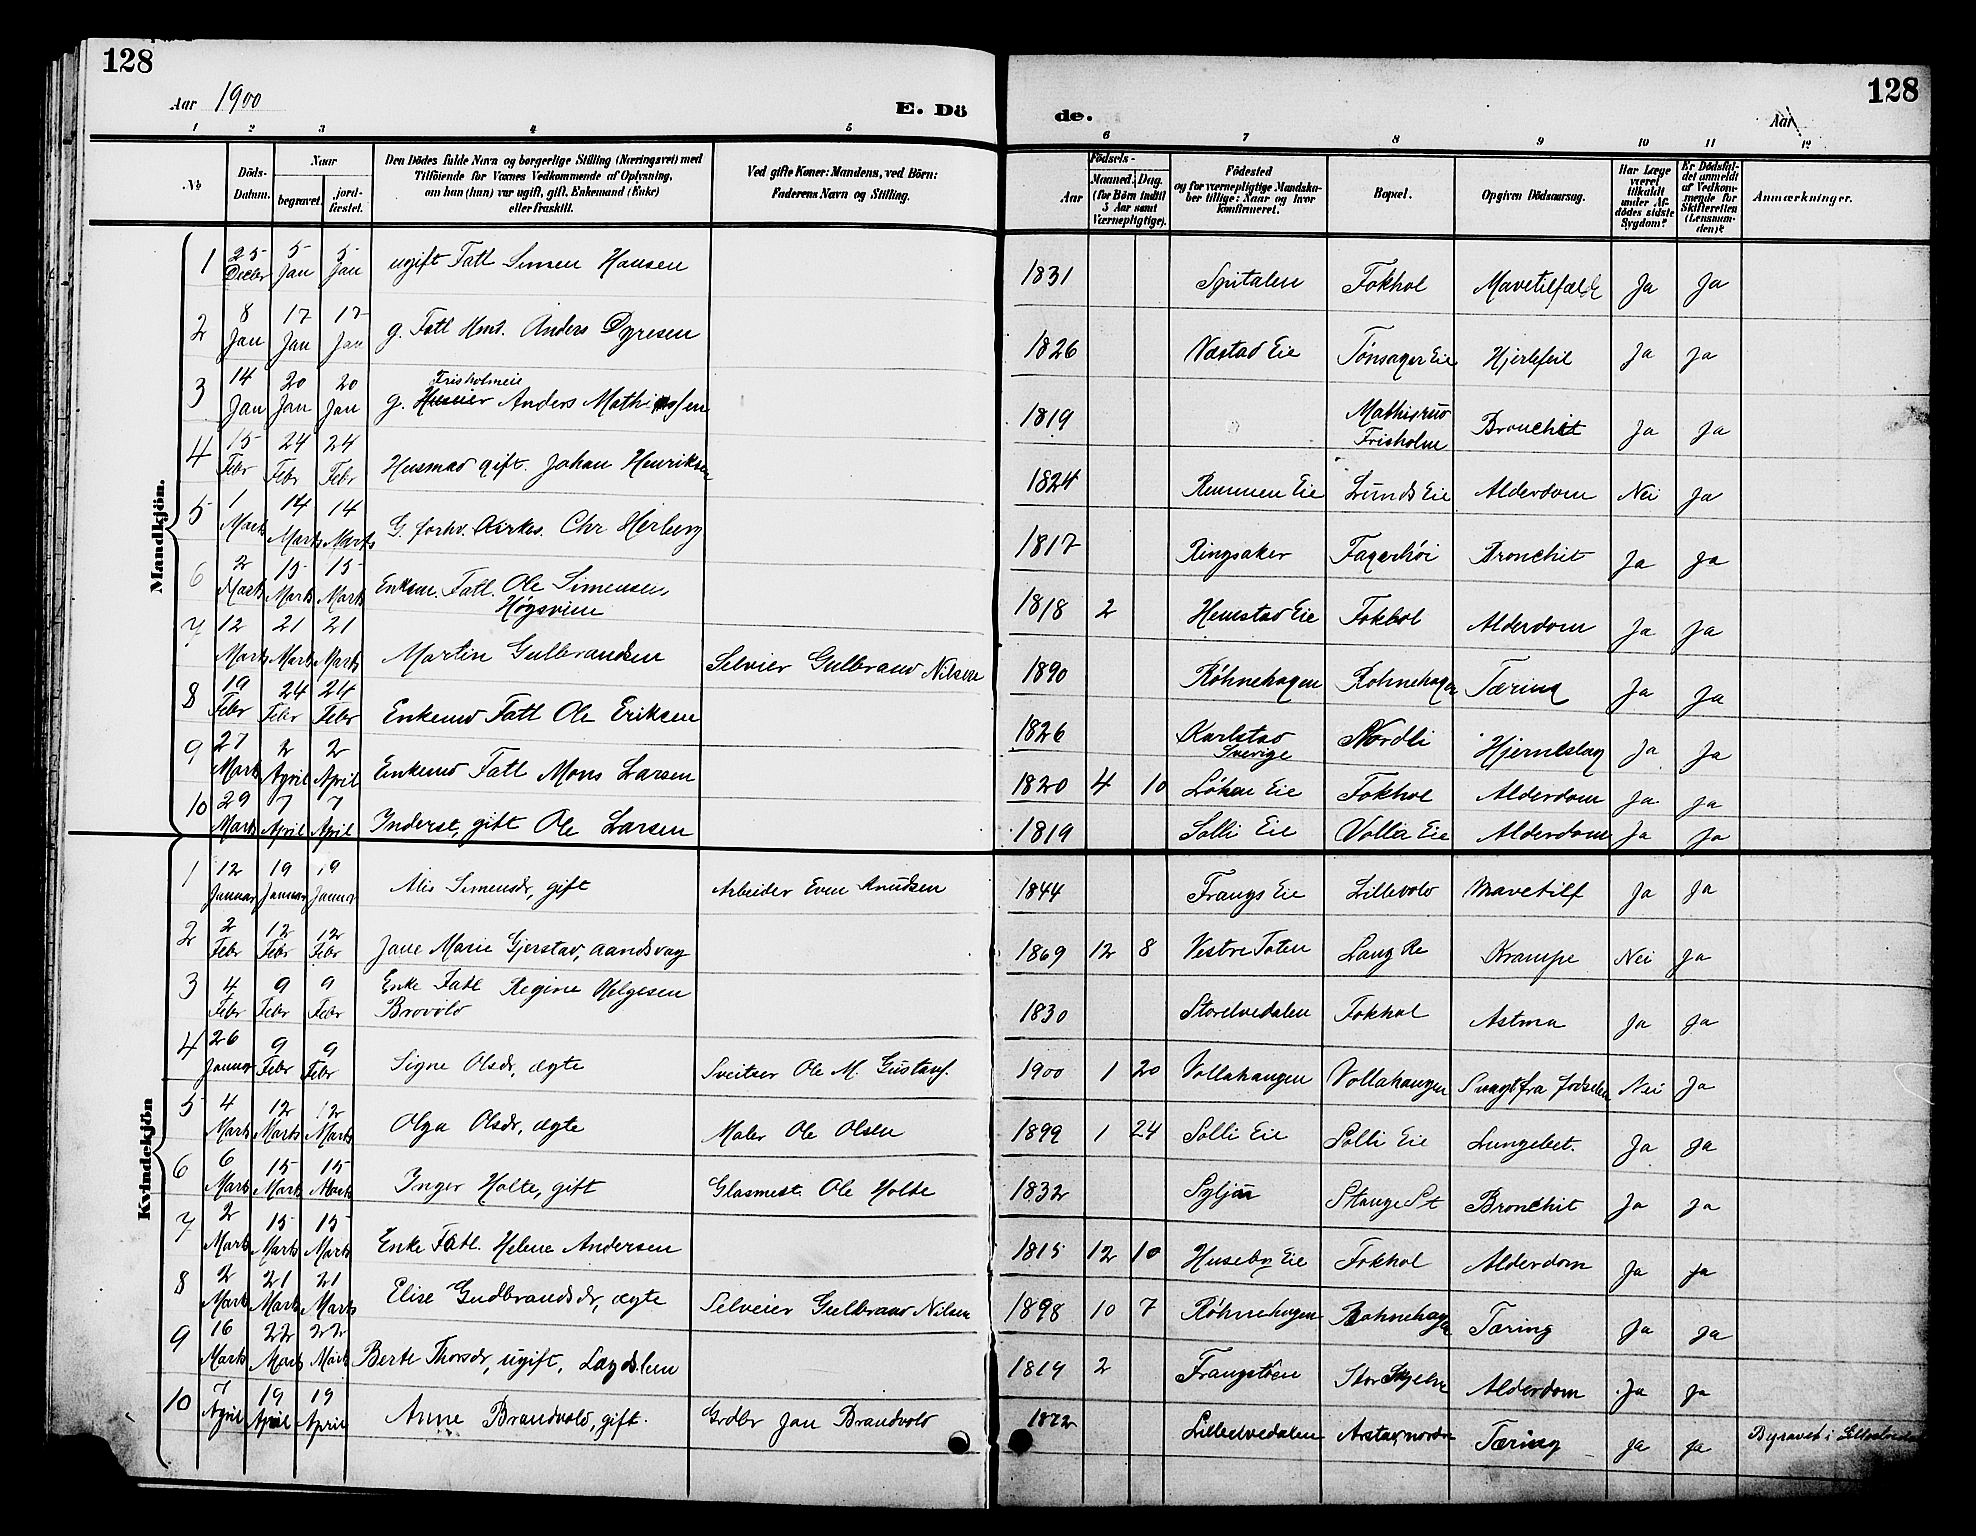 128
128
Aar 1900
E. Dö
de.
Aar
1 2 3 4 5 6 7 8 9 10 11 12
No
Döds-Datum.
Naar
begravet.
jord-fæstet.
Den Dödes fulde Navn og borgerlige Stilling (Næringsvei) med
Tilföiende for Voxnes Vedkommende af Oplysning,
om han (hun) var ugift, gift, Enkemand (Enke)
eller fraskilt.
Ved gifte Koner: Mandens, ved Börn:
Faderens Navn og Stilling.
Födsels-
Aar
Maaned. Dag.
(for Börn indtil
5 Aar samt
Værnepligtige).
Födested
og for værnepligtige Mandska-
ber tillige: Naar og hvor
konfirmeret.
Bopæl.
Opgiven Dödsaarsag.
Har Læge
været
tilkaldt
under Af-
dödes sidste
Sygdom?
Er Dödsfal-
det anmeldt
af Vedkom-
mende for
Skifteretten
(Lensman-
den)?
Anmærkninger.
Mandkjön.
1 25 Decbr 5 Jan 5 Jan ugift Fatl Simen Hansen 1831 Spitalen Fokhol Mavetilfælde Ja Ja
2 8 Jan 17 Jan 17 Jan g. Fatl Hmd. Anders Dyresen 1826 Næstad Eie Tønsager Eie Hjertefeil Ja Ja
Frisholmeie
3 14 Jan 20 Jan 20 Jan g. Husier Anders Mathiassen 1819 Mathisrud Frisholm Bronchit Ja Ja
4 15 Febr 24 Febr 24 Febr Husmad gift. Johan Henriksen 1824 Remmen Eie Lunds Eie Alderdom Nei Ja
5 1 Marts 14 Marts 14 Marts G. forhv. Kirkes. Chr Herberg 1817 Ringsaker Fagerhøi Bronchit Ja Ja
6 2 Marts 15 Marts 15 Marts Enkem. Fatl. Ole Simensen, Høgsveen 1818 2 Hemstad Eie Fokhol Alderdom Ja Ja
7 12 Marts 21 Marts 21 Marts Martin Gulbrandsen Selveier Gulbrand Nilsen 1890 Røhnehagen Rohnehagen Tæring Ja Ja
8 19 Febr 24 Febr 24 Febr Enkemd Fatl Ole Eriksen 1826 Karlstad Sverige Nordli Hjerneslag Ja Ja
9 27 Marts 2 April 2 April Enkemd Fatl Mons Larsen 1820 4 10 Løken Eie Fokhol Alderdom Ja Ja
10 29 Marts 7 April 7 April Inderst, gift Ole Larsen 1819 Solli Eie Volla Eie Alderdom Ja Ja
Kvindekjön
1 12 Januar 19 Januar 19 Januar Alis Simensdr, gift Arbeider Even Knudsen 1844 Frangs Eie Lillevold Mavetilf Ja Ja
2 2 Febr 12 Febr 12 Febr Jane Marie Gjerstad, aandsvag 1869 12 8 Vestre Toten Lang Re Krampe Nei Ja
3 4 Febr 9 Febr 9 Febr Enke Fatl Regine Helgesen Brovold 1830 Storelvedalen Fokhol Astma Ja Ja
4 26 Januar 9 Febr 9 Febr Signe Olsdr, ægte Sveitser Ole M. Gustavs. 1900 1 20 Vollahaugen Vollahaugen Svagt fra fødselen Nei Ja
5 4 Marts 12 Marts 12 Marts Olga Olsdr, ægte Maler Ole Olsen 1899 1 24 Solli Eie Solli Eie Lungebet. Ja Ja
6 6 Marts 15 Marts 15 Marts Inger Holte, gift Glasmest. Ole Holte 1832 Syljua Stange St Bronchit Ja Ja
7 2 Marts 15 Marts 15 Marts Enke Fatl. Helene Andersen 1815 12 10 Huseby Eie Fokhol Alderdom Ja Ja
8 2 Marts 21 Marts 21 Marts Elise Gudbrandsdr, ægte Selveier Gulbrand Nilsen 1898 10 7 Røhnehagen Rohnehagen Tæring Ja Ja
9 16 Marts 22 Marts 22 Marts Berte Thorsdr, ugift, Lægdslem 1819 2 Frangstøen Stor Skjelve Alderdom Ja Ja
10 7 April 19 April 19 April Anne Brandvold, gift. Grdbr Jan Brandvold 1822 Lilleelvedalen Arstad nordre Tæring Ja Ja Begravet i Lilleelvedalen